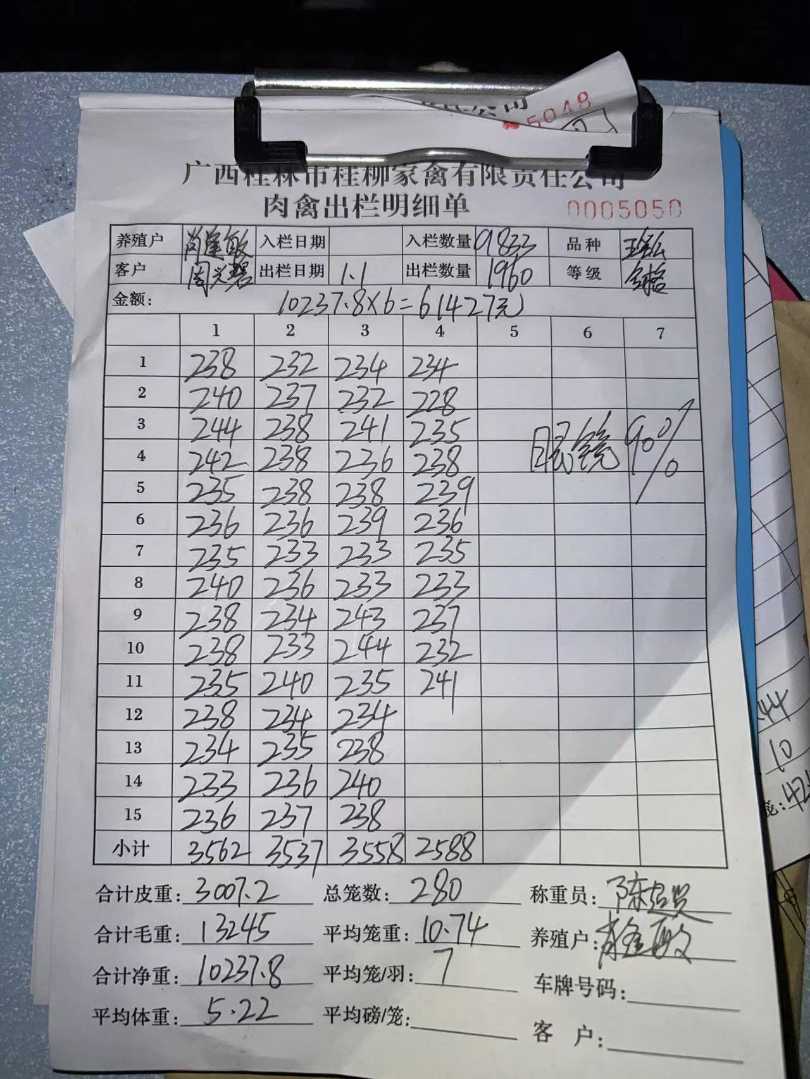 5048
广西桂林市桂柳家禽有限责任公司
肉禽出栏明细单 0005050
养殖户 入栏日期 入栏数量 9833 品种
客户 周兴碧 出栏日期 1.1 出栏数量 1960 等级 合格
金额: 10237.8×6=61427元
1 2 3 4 5 6 7
1 238 232 234 234
2 240 237 232 228
3 244 238 241 235 眼镜90%
4 242 238 236 238
5 235 238 238 239
6 236 236 239 236
7 235 233 233 235
8 240 236 233 233
9 238 234 243 237
10 238 233 244 232
11 235 240 235 241
12 238 234 234
13 234 235 238
14 233 236 240
15 236 237 238
小计 3562 3537 3558 2588
合计皮重: 3007.2 总笼数: 280 称重员: 陈
合计毛重: 13245 平均笼重: 10.74 养殖户:
合计净重: 10237.8 平均笼/羽: 7 车牌号码:
平均体重: 5.22 平均磅/笼: 客 户:
44
10